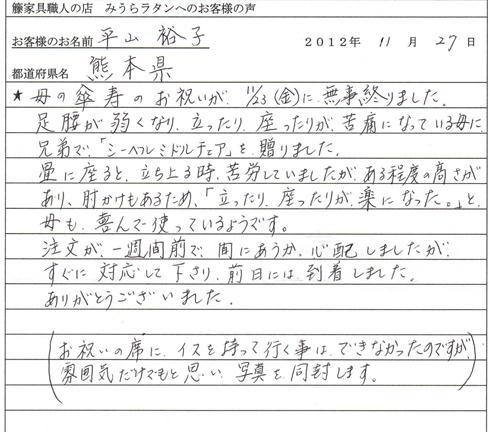 籐家具職人の店　みうらラタンへのお客様の声
お客様のお名前 平山 裕子 2012年 11月 27日
都道府県名 熊本県
★母の傘寿のお祝いが、11/23(金)に無事終りました。
足腰が弱くなり、立ったり、座ったりが、苦痛になっている母に、
兄弟で、「シーベルミドルチェア」を贈りました。
畳に座ると、立ち上る時、苦労していましたが、ある程度の高さが
あり、肘かけもあるため、「立ったり、座ったりが、楽になった。」と、
母も、喜んで使っているようです。
注文が、一週間前で、間にあうか、心配しましたが、
すぐに対応して下さり、前日には、到着しました。
ありがとうございました。
(お祝いの席に、イスを持って行く事は、できなかったのですが
雰囲気だけでもと思い、写真を同封します。)